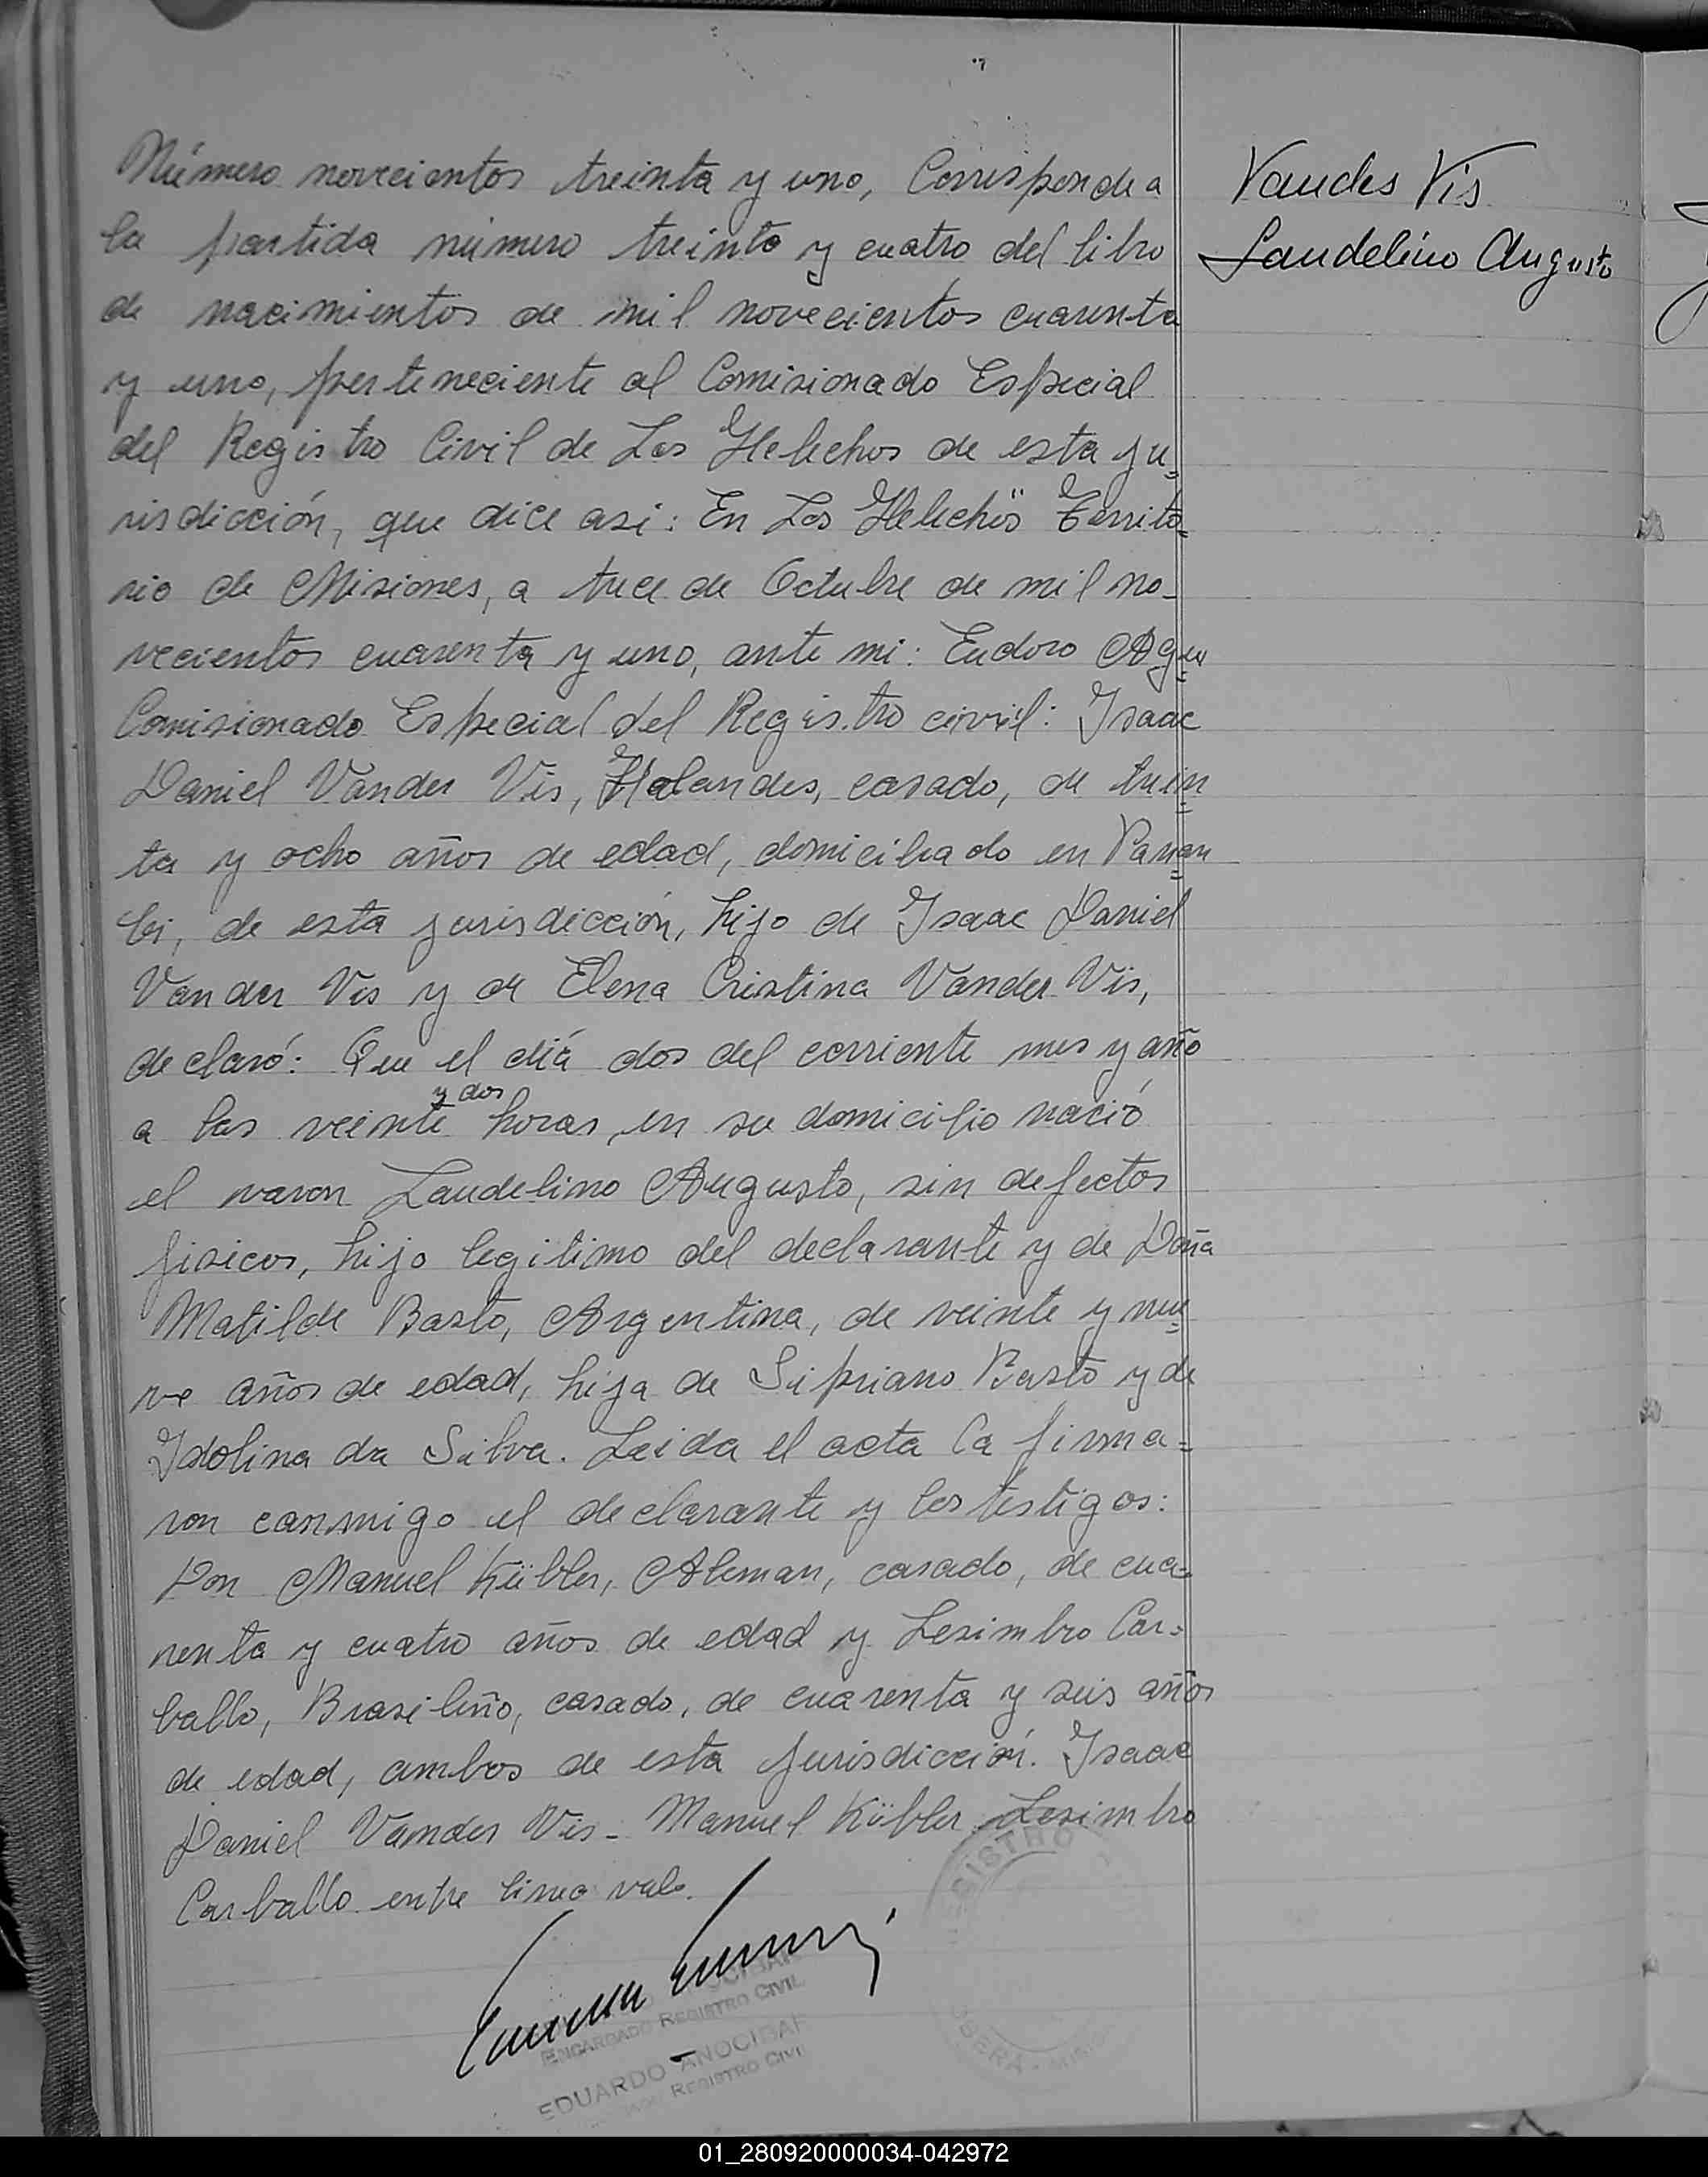 Número novecientos treinta y uno, Corresponde a
la partida número treinta y cuatro del libro
de nacimientos de mil novecientos cuarenta
y uno, perteneciente al Comisionado Especial
del Registro Civil de Los Helechos de esta ju=
risdicción, que dice asi: En Los Helechos Territo=
rio de Misiones, a trece de Octubre de mil no-
vecientos cuarenta y uno, ante mi: Eudoro
Comisionado Especial del Registro civil: Isaac
Daniel Vander Vis, Holandes, casado, de trein=
ta y ocho años de edad, domiciliado en Panam=
bi, de esta jurisdicción, hijo de Isaac Daniel
Vander Vis y de Elena Cristina Vander Vis,
declaró: Que el día dos del corriente mes y año
a las veinte y dos horas, en su domicilio nació
el varon Laudelino Augusto, sin defectos
fisicos, hijo legitimo del declarante y de Doña
Matilde Basto, Argentina, de veinte y nue=
ve años de edad, hija de Sipriano Basto y de
Idolina da Silva. Leida el acta la firma=
ron conmigo el declarante y los testigos:
Don Manuel Kübler, Aleman, casado, de cua=
renta y cuatro años de edad y Lesimbro Car=
ballo, Brasileño, casado, de cuarenta y seis años
de edad, ambos de esta jurisdicción. Isaac
Daniel Vander Vis - Manuel Kübler. Lesimbro
Carballo entre linea vale.
Vander Vis
Laudelino Augusto
ENCARGADO REGISTRO CIVIL
EDUARDO ANOCIBAR
REGISTRO CIVIL
REGISTRO
OBERÁ - MISIONES
01_280920000034-042972